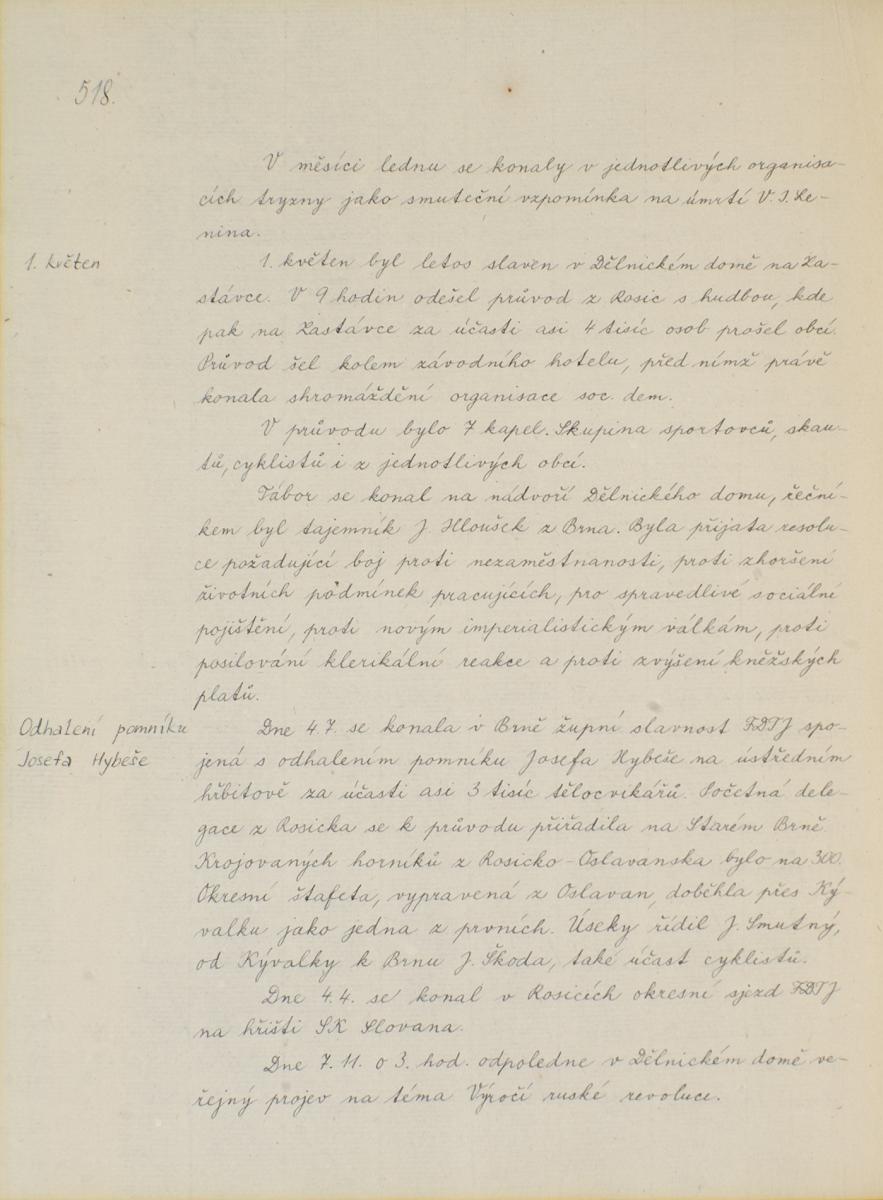 518.
V měsíci lednu se konaly v jednotlivých organisa-
cích tryzny jako smuteční vzpomínka na úmrtí V. I. Le-
nina.
1. květen
1. květen byl letos slaven v Dělnickém domě na Za-
stávce. V 9 hodin odešel průvod z Rosic s hudbou, kde
pak na Zastávce za účasti asi 4 tisíc osob prošel obcí.
Průvod šel kolem závodního hotelu, před nímž právě
konala shromáždění organisace soc. dem.
V průvodu bylo 7 kapel. Skupina sportovců, skau-
tů, cyklistů i z jednotlivých obcí.
Tábor se konal na nádvoří Dělnického domu, řeční-
kem byl tajemník J. Hloušek z Brna. Byla přijata resolu-
ce požadující boj proti nezaměstnanosti, proti zhoršení
životních podmínek pracujících, pro spravedlivé sociální
pojištění, proti novým imperialistickým válkám, proti
posilování klerikální reakce a proti zvýšení kněžských
platů.
Odhalení pomníku
Josefa Hybeše
Dne 4.7. se konala v Brně župní slavnost FDTJ spo-
jená s odhalením pomníku Josefa Hybeše na ústředním
hřbitově za účasti asi 3 tisíc tělocvikářů. Početná dele-
gace z Rosicka se k průvodu přiřadila na Starém Brně.
Krojovaných horníků z Rosicko-Oslavanska bylo na 300.
Okresní štafeta, vypravená z Oslavan, doběhla přes Ký-
valku jako jedna z prvních. Úseky řídil J. Smutný,
od Kývalky k Brnu J. Škoda, také účast cyklistů.
Dne 4.4. se konal v Rosicích okresní sjezd FDTJ
na hřišti SK Slovana.
Dne 7. 11. o 3. hod. odpoledne v Dělnickém domě ve-
řejný projev na téma Výročí ruské revoluce.